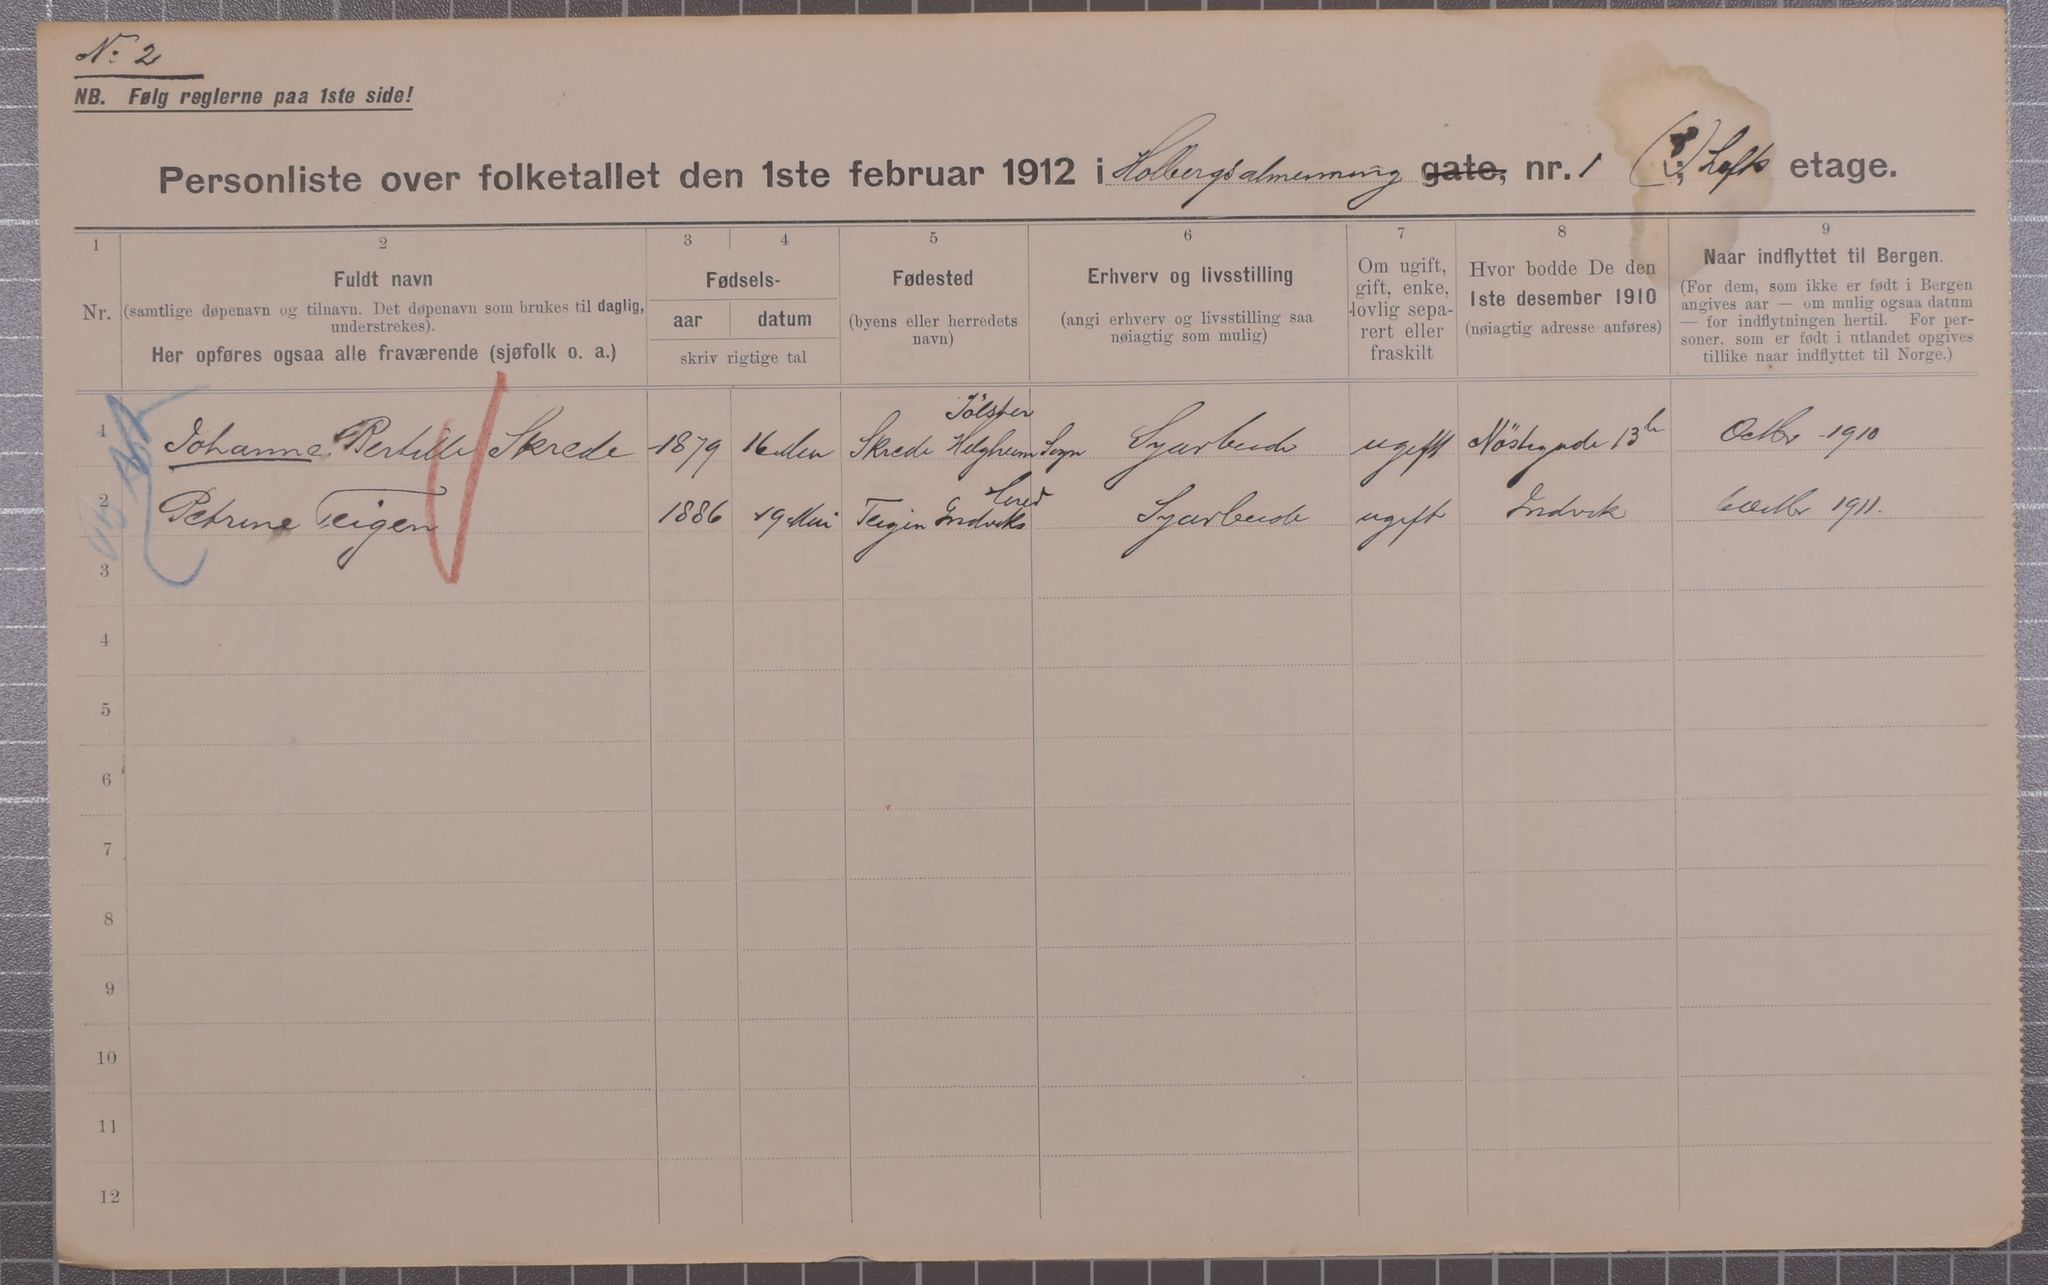 No 2
NB. Følg reglerne paa 1ste side!
Personliste over folketallet den 1ste februar 1912 i Holbergsalmenning gate, nr. 1 Loft etage.
1 2 3 4 5 6 7 8 9
Nr.
Fuldt navn
(samtlige døpenavn og tilnavn. Det døpenavn som brukes til daglig,
understrekes).
Her opføres ogsaa alle fraværende (sjøfolk o. a.)
Fødsels-
aar datum
skriv rigtige tal
Fødested
(byens eller herredets
navn)
Erhverv og livsstilling
(angi erhverv og livsstilling saa
nøiagtig som mulig)
Om ugift,
gift, enke,
lovlig sepa-
rert eller
fraskilt
Hvor bodde De den
1ste desember 1910
(nøiagtig adresse anføres)
Naar indflyttet til Bergen.
(For dem, som ikke er født i Bergen
angives aar — om mulig ogsaa datum
— for indflytningen hertil. For per-
soner, som er født i utlandet opgives
tillike naar indflyttet til Norge.)
Jølster
1 Johanne Skrede 1879 16 Skrede Helgheim Sogn Syarbeide ugift 13 Octbr 1910
Hered
2 Petrine Teigen 1886 19 Mai Teigen Indviks Syarbeide ugift Indvik 1911.
3
4
5
6
7
8
9
10
11
12